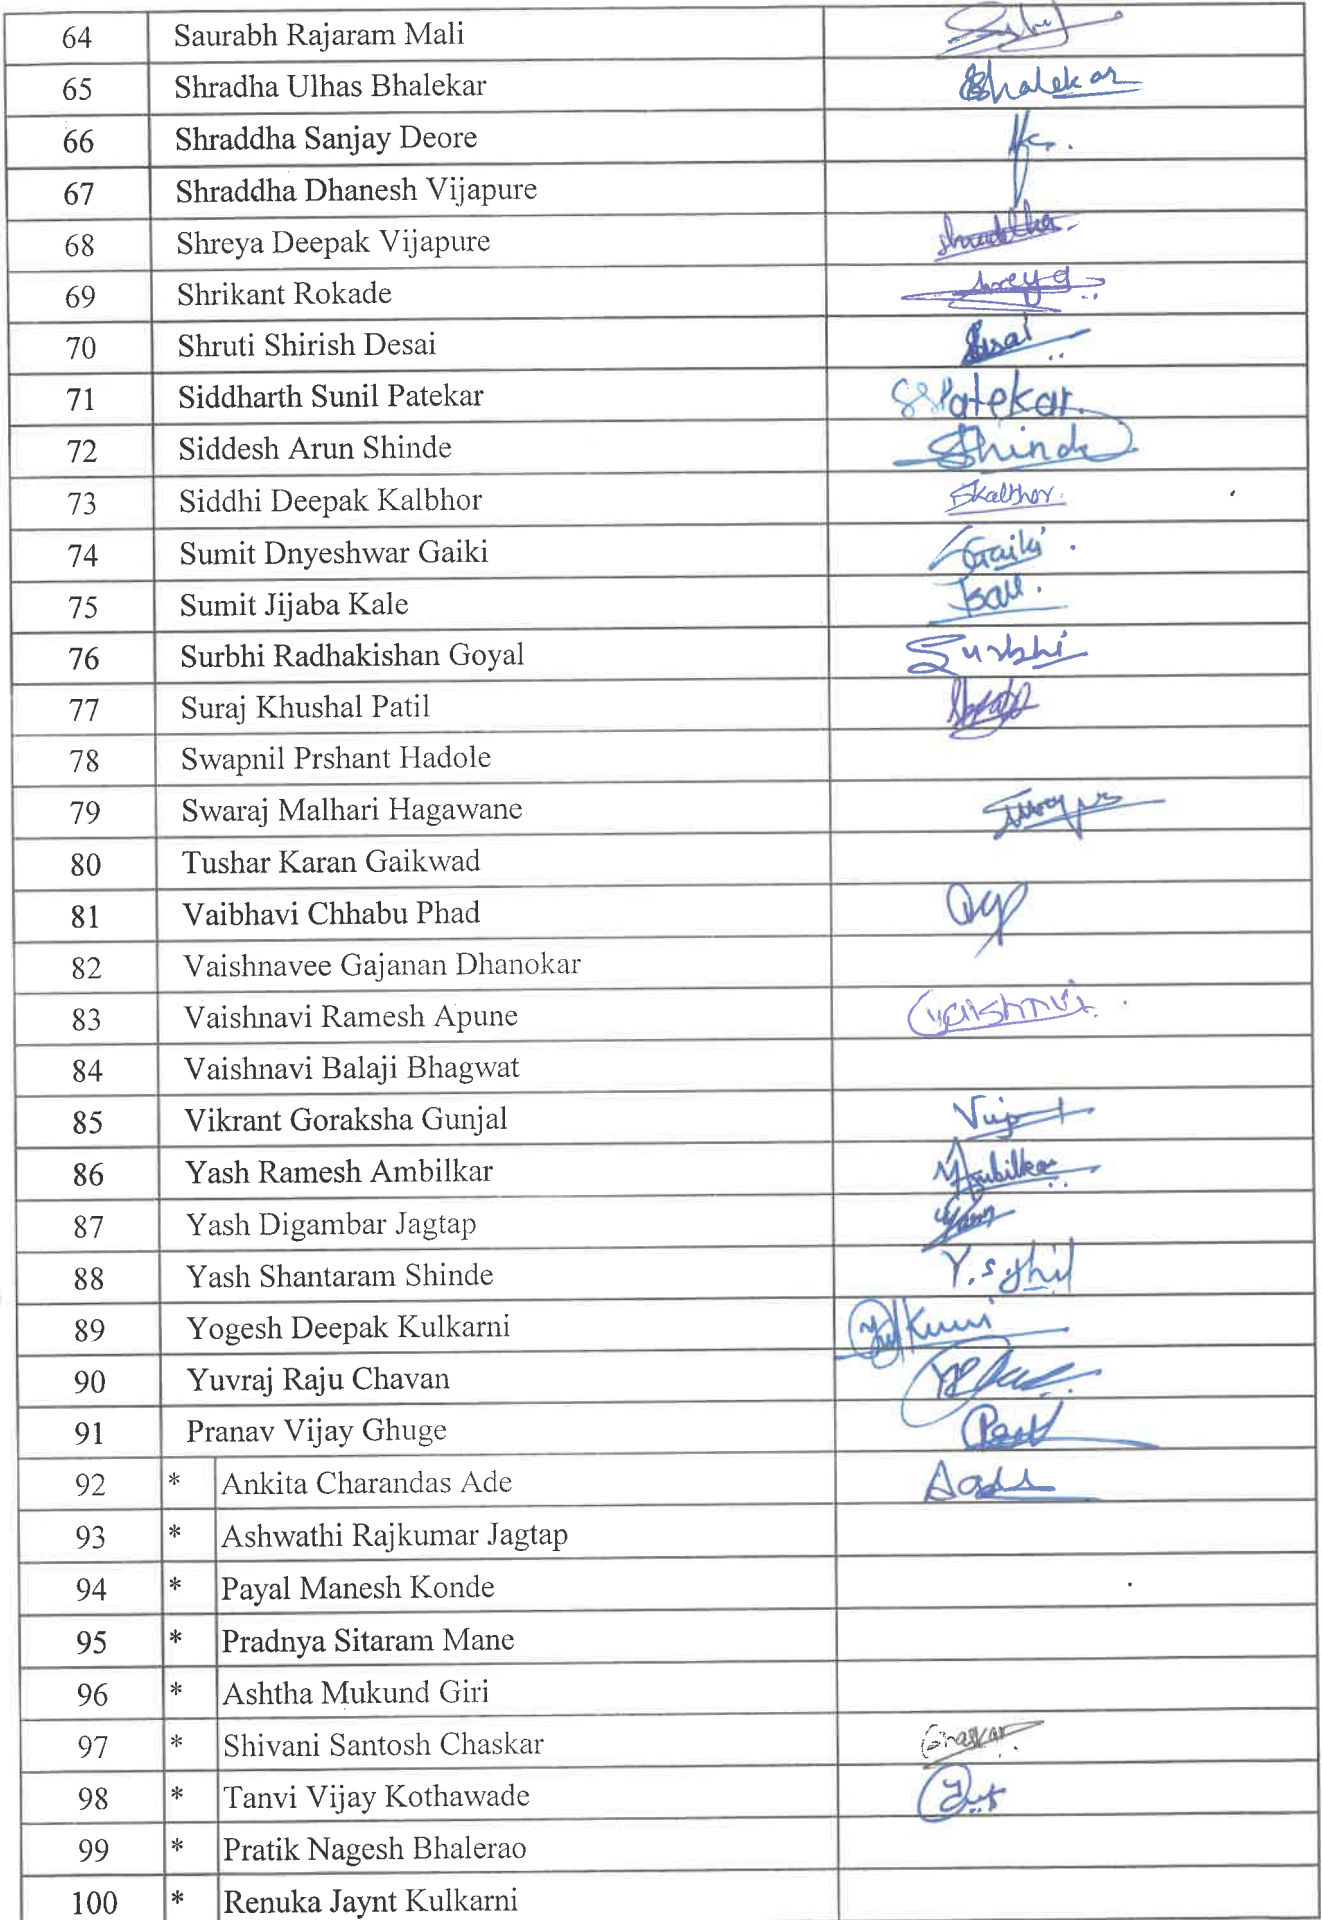 64 Saurabh Rajaram Mali
65 Shradha Ulhas Bhalekar Bhalekar
66 Shraddha Sanjay Deore
67 Shraddha Dhanesh Vijapure
68 Shreya Deepak Vijapure Shraddha
69 Shrikant Rokade Shreya
70 Shruti Shirish Desai Desai
71 Siddharth Sunil Patekar SSPatekar
72 Siddesh Arun Shinde Shinde
73 Siddhi Deepak Kalbhor SKalbhor
74 Sumit Dnyeshwar Gaiki Gaiki
75 Sumit Jijaba Kale
76 Surbhi Radhakishan Goyal Surbhi
77 Suraj Khushal Patil
78 Swapnil Prshant Hadole
79 Swaraj Malhari Hagawane
80 Tushar Karan Gaikwad
81 Vaibhavi Chhabu Phad
82 Vaishnavee Gajanan Dhanokar
83 Vaishnavi Ramesh Apune Vaishnvi
84 Vaishnavi Balaji Bhagwat
85 Vikrant Goraksha Gunjal
86 Yash Ramesh Ambilkar YAmbilkar
87 Yash Digambar Jagtap
88 Yash Shantaram Shinde
89 Yogesh Deepak Kulkarni
90 Yuvraj Raju Chavan
91 Pranav Vijay Ghuge
92 * Ankita Charandas Ade
93 * Ashwathi Rajkumar Jagtap
94 * Payal Manesh Konde
95 * Pradnya Sitaram Mane
96 * Ashtha Mukund Giri
97 * Shivani Santosh Chaskar Chaskar
98 * Tanvi Vijay Kothawade
99 * Pratik Nagesh Bhalerao
100 * Renuka Jaynt Kulkarni